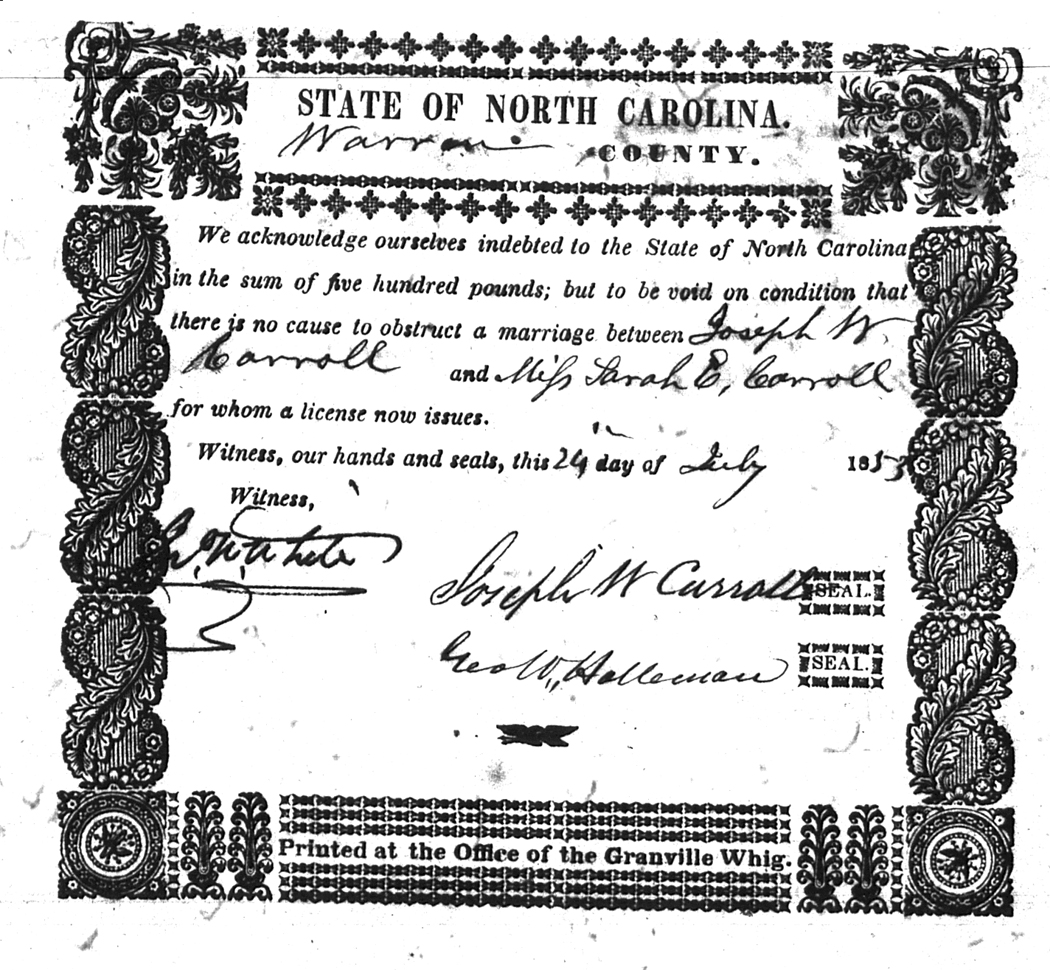 STATE OF NORTH CAROLINA.
Warren COUNTY.
We acknowledge ourselves indebted to the State of North Carolina
in the sum of five hundred pounds; but to be void on condition that
there is no cause to obstruct a marriage between Joseph W.
Carroll and Miss Sarah E, Carroll
for whom a license now issues.
Witness, our hands and seals, this 24 day of July 1853
Witness,
W. White
Joseph W Carroll SEAL.
Geo W,, Holleman SEAL.
Printed at the Office of the Granville Whig.